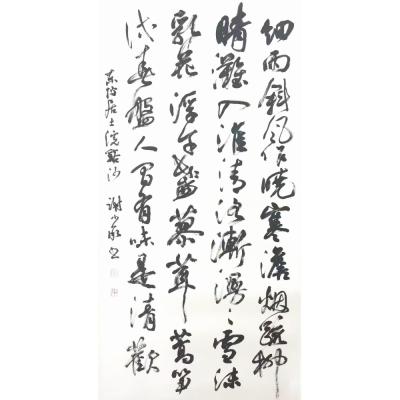 细雨斜风作晓寒澹烟疏柳
晴灘入淮清洛漸漫〻雪沫
乳花浮午盏蓼茸蒿笋
试春盤人间有味是清歡
东坡居士浣溪沙 谢少